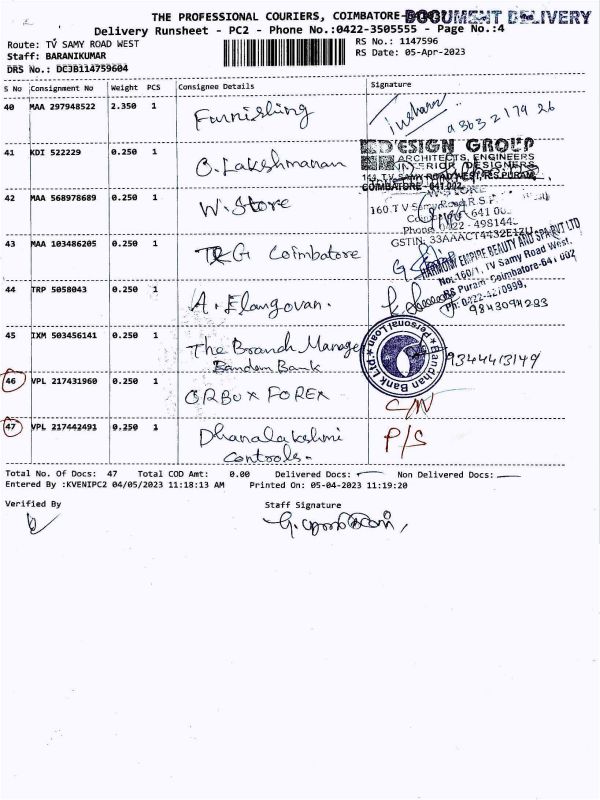 THE PROFESSIONAL COURIERS, COIMBATORE-
DOCUMENT DELIVERY
Delivery Runsheet - PC2 - Phone No.:0422-3505555 - Page No.:4
Route: TV SAMY ROAD WEST
RS No.: 1147596
Staff: BARANIKUMAR
RS Date: 05-Apr-2023
DRS No.: DCJB114759604
S No Consignment No Weight PCS Consignee Details Signature
40 MAA 297948522 2.350 1 Furnishing
41 KDI 522229 0.250 1 O. Lakshmanan
D'ESIGN GROUP
ARCHITECTS, ENGINEERS
INTERIOR DESIGNERS
COIMBATORE - 641 002
42 MAA 568978689 0.250 1 W. Store
W-STORE
160. T V Samy Road R.S.P
Phone 0422 - 498144
GSTIN: 33AAACT4432E1ZU
43 MAA 103486205 0.250 1 TRG Coimbatore
HARMONY EMPIRE BEAUTY AND SPA PVT LTD
No: 160/1, TV Samy Road West,
RS Puram, Coimbatore-641 002
Ph: 0422-4270999,
44 TRP 5058043 0.250 1 A. Elangovan. 9843094283
45 IXM 503456141 0.250 1 The Branch Manager 9344413149
Bandem Bank
Bandhan Bank Ltd.
Personal Loan
46 VPL 217431960 0.250 1 ORBUX FOREX C/N
47 VPL 217442491 0.250 1 Dhanalakshmi P/S
Controls.
Total No. Of Docs: 47 Total COD Amt: 0.00 Delivered Docs: Non Delivered Docs:
Entered By :KVENIPC2 04/05/2023 11:18:13 AM Printed On: 05-04-2023 11:19:20
Verified By Staff Signature